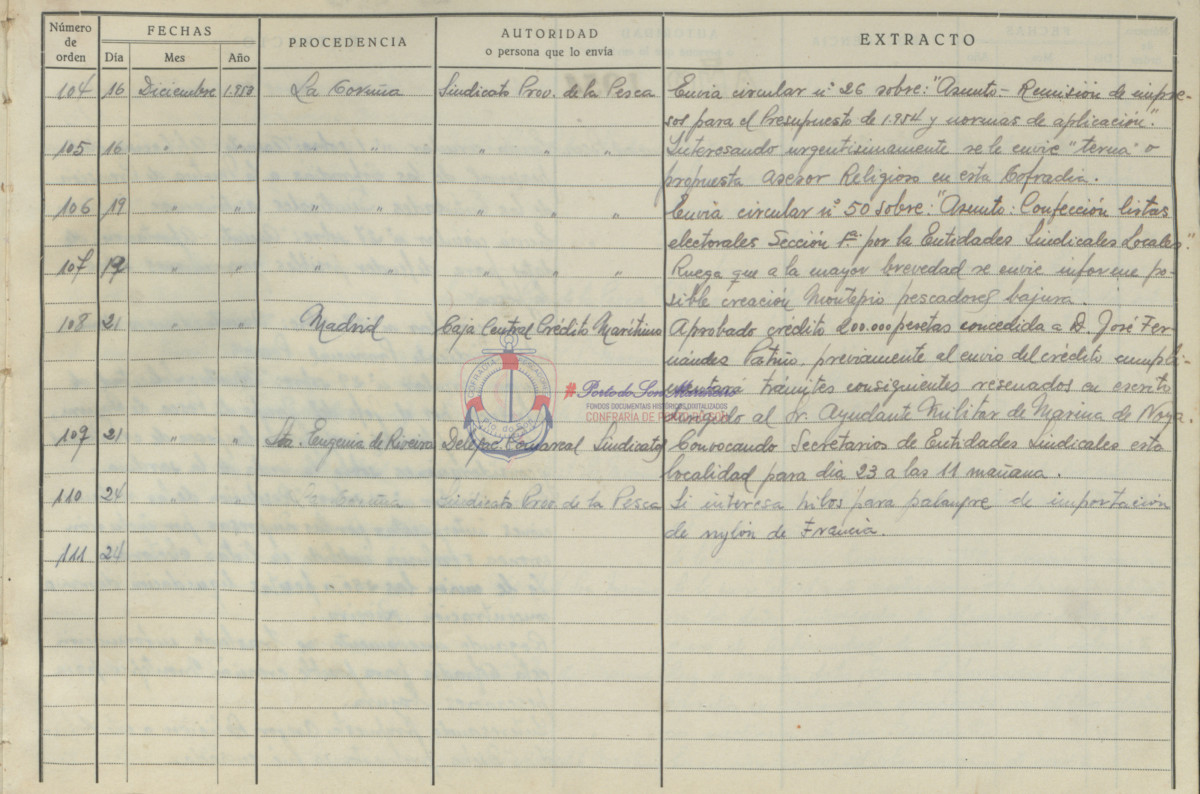 Número de orden
FECHAS
Dia Mes Año
PROCEDENCIA
AUTORIDAD
o persona que lo envía
EXTRACTO
104 16 Diciembre 1.953 La Coruña Sindicato Prov. de la Pesca Envia circular nº 26 sobre: "Asunto - Remisión de impre-
sos para el Presupuesto de 1.954 y normas de aplicación".
105 16 " " " " " " " Interesando urgentisimamente se le envie "terna" o
propuesta Asesor Religioso en esta Cofradia.
106 19 " " " " " " " Envia circular nº 50 sobre: "Asunto: Confección listas
electorales Sección por la Entidades Sindicales Locales".
107 19 " " " " " " " Ruega que a la mayor brevedad se envie informe po-
sible creación Montepio pescadores bajura.
108 21 " " Madrid Caja Central Crédito Maritimo Aprobado crédito 200.000 pesetas concedida a D. José Fer-
nandes Patiño, previamente al envio del crédito cumpli-
mentará trámites consiguientes resenados en escrito
dirigido al Sr. Ayudante Militar de Marina de Noya.
109 21 " " Sta. Eugenia de Riveira Delegac. Comarcal Sindicatos Convocando Secretarios de Entidades Sindicales esta
localidad para dia 23 a las 11 mañana.
110 24 La Coruña Sindicato Prov. de la Pesca Si interesa hilos para palangre de importación
de nylón de Francia.
111 24
#Porto do Son Mariñeiro
FONDOS DOCUMENTAIS HISTÓRICOS DIGITALIZADOS
CONFRARÍA DE PORTO DO SON